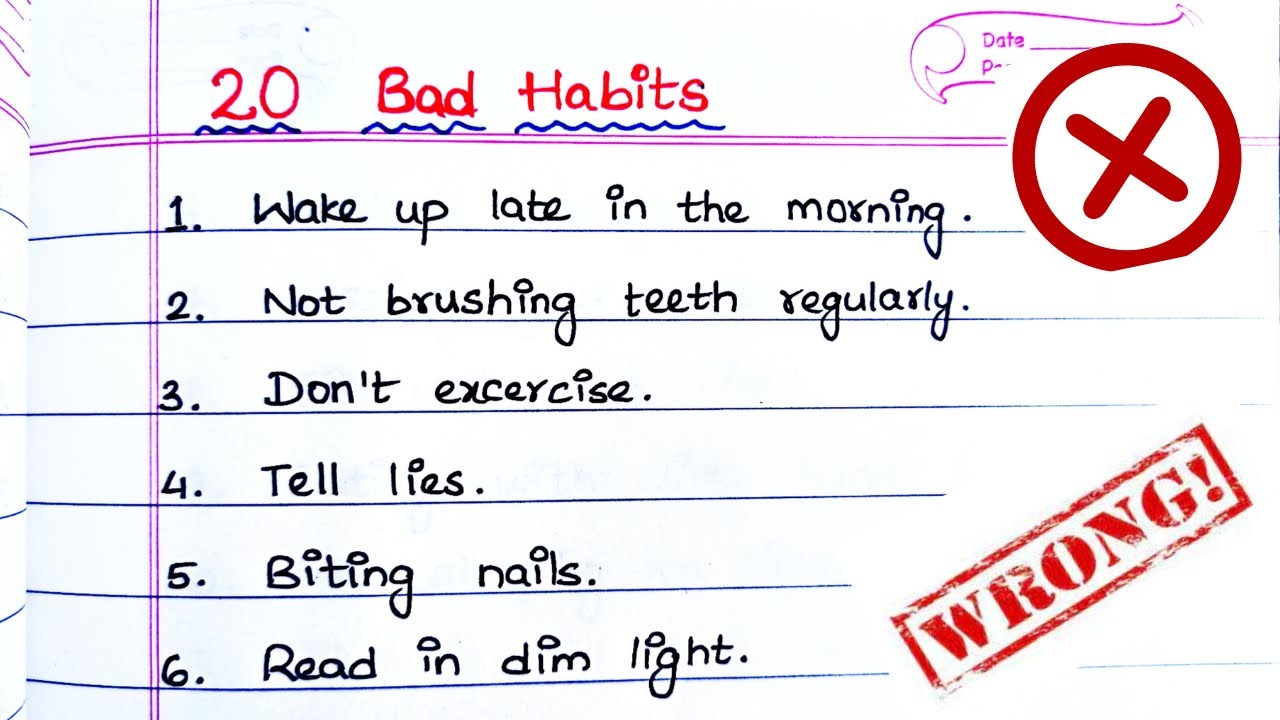 Date
20 Bad Habits
1. Wake up late in the morning.
2. Not brushing teeth regularly.
3. Don't excercise.
4. Tell lies.
5. Biting nails.
6. Read in dim light.
WRONG!